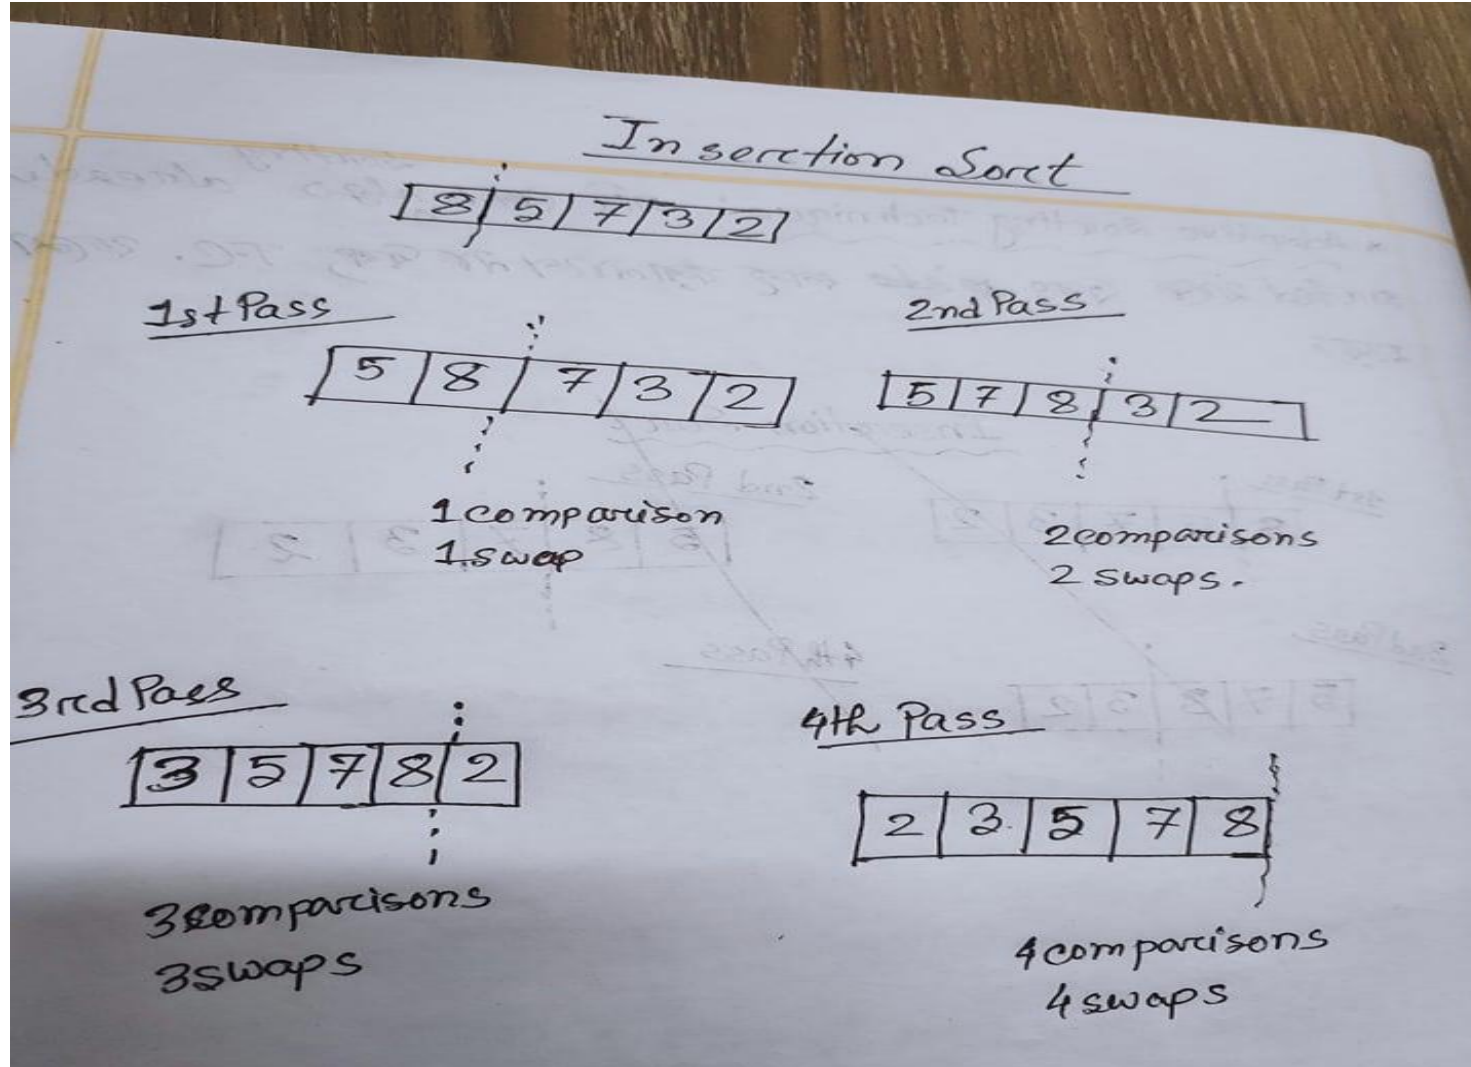 Insertion Sort
8 5 7 3 2
1st Pass
5 8 7 3 2
1 comparison
1 swap
2nd Pass
5 7 8 3 2
2 comparisons
2 swaps.
3rd Pass
3 5 7 8 2
3 comparisons
3 swaps
4th Pass
2 3 5 7 8
4 comparisons
4 swaps